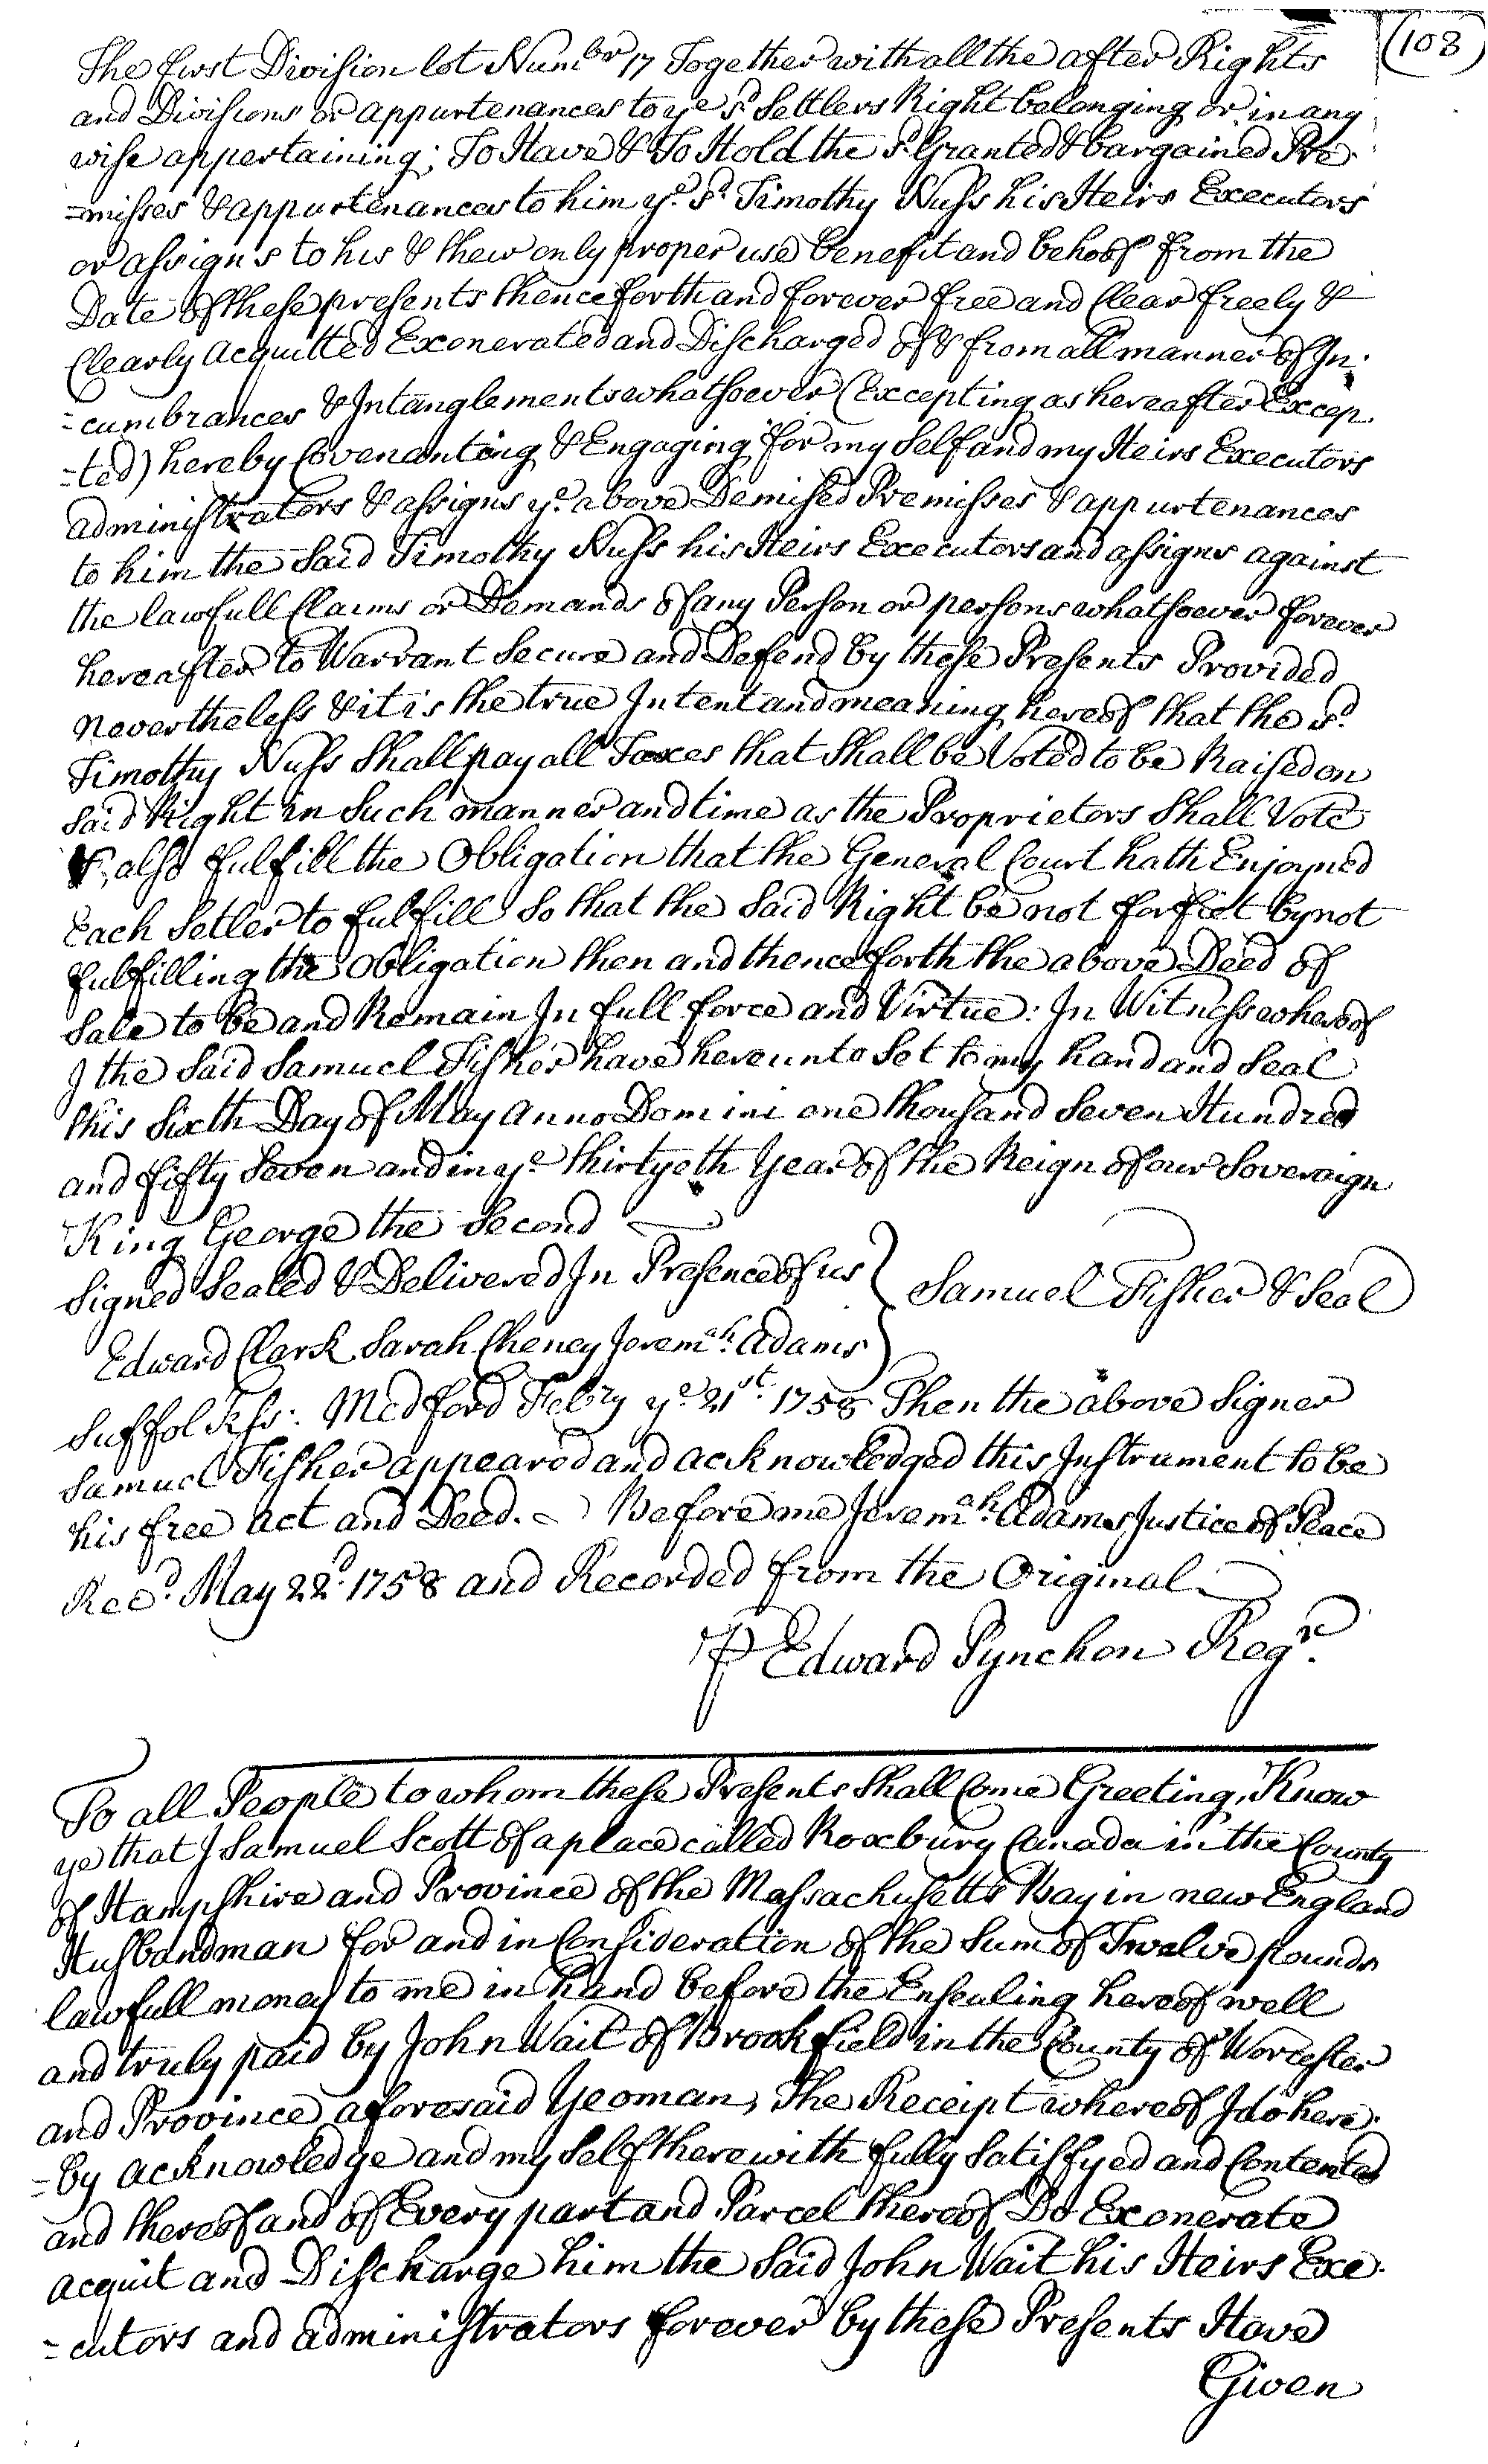 (108)
The first Division lot Numbr 17 Together with all the after Rights
and Divisions or appurtenances to ye sd. Settlers Right belonging or in any
wise appertaining; To Have & To Hold the sd. Granted & bargained Pre-
=misses & appurtenances to him ye. sd. Timothy Nuss his Heirs Executors
or assigns to his & their only proper use benefit and behoof from the
Date of these presents thence forth and forever free and Clear freely &
Clearly Acquitted Exonerated and Discharged of & from all manner of In-
=cumbrances & Intanglements whatsoever (Excepting as hereafter Excep-
=ted) hereby Covenanting & Engaging for my Self and my Heirs Executors
administrators & assigns ye. above Demised Premisses & appurtenances
to him the Said Timothy Nuss his Heirs Executors and assigns against
the lawfull Claims or Demands of any Person or persons whatsoever forever
hereafter to Warrant Secure and Defend by these Presents Provided
nevertheless & it is the true Intent and meaning hereof that the sd.
Timothy Nuss Shall pay all Taxes that Shall be Voted to be Raised on
Said Right in Such manner and time as the Proprietors Shall Vote
& also fulfill the Obligation that the General Court hath Enjoyned
Each Setler to fulfill So that the Said Right be not forfiet by not
fulfilling the Obligation then and thence forth the above Deed of
Sale to be and Remain In full force and Virtue: In Witness whereof
I the Said Samuel Fisher have hereunto Set to my hand and Seal
this Sixth Day of May Anno Domini one thousand Seven Hundred
and fifty Seven and in ye. thirtyeth Year of the Reign of our Soveraign
King George the Second
Signed Sealed & Delivered In Presence of us } Samuel Fisher & Seal
Edward Clark Sarah Cheney Jeremah. Adams
Suffolk ss: Medford Febry ye 21st. 1758 Then the above Signer
Samuel Fisher appeared and acknowledged this Instrument to be
his free act and Deed. Before me Jeremah. Adams Justice of Peace
Recd. May 22d. 1758 and Recorded from the Original
P Edward Pynchon Regr.
To all People to whom these Presents Shall Come Greeting, Know
ye that I Samuel Scott of a place called Roxbury Canada in the County
of Hampshire and Province of the Massachusetts Bay in new England
Husbandman for and in Consideration of the Sum of Twelve pounds
lawfull money to me in hand before the Ensealing hereof well
and truly paid by John Wait of Brookfield in the County of Worcester
and Province aforesaid Yeoman, The Receipt whereof I do here-
=by acknowledge and my Self therewith fully Satisfyed and Contented
and thereof and of Every part and Parcel thereof Do Exonerate
acquit and Discharge him the Said John Wait his Heirs Exe-
=cutors and administrators forever by these Presents Have
Given